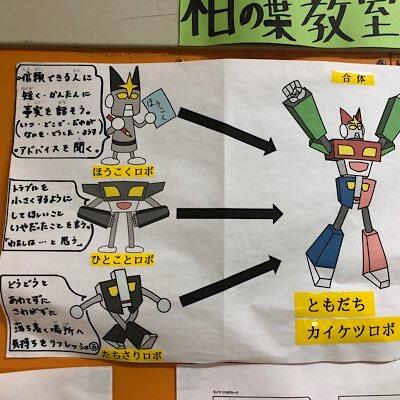 柏の葉教室
合体
・信頼できる人に
短く・かんたんに
事実を話そう。
いつ・どこで・だれが
なにを・どうした・ようす
・アドバイスを聞く。
ほうこく
ほうこくロボ
トラブルを
小さくするように
してほしいこと
いやだったことを言う。
「わたしは…と思う」
ひとことロボ
どうどうと
あわてずに
さわがずに
落ち着く場所へ
気持ちをリフレッシュ
たちさりロボ
ともだち
カイケツロボ